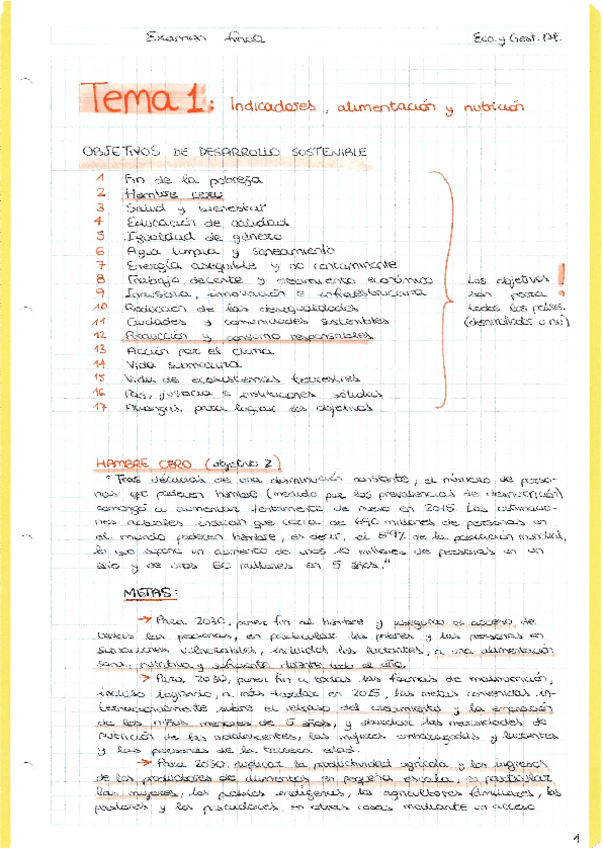 Examen final
Eco. y Gest. Pl.
Tema 1: Indicadores, alimentación y nutrición
OBJETIVOS DE DESARROLLO SOSTENIBLE
1 Fin de la pobreza
2 Hambre cero
3 Salud y bienestar
4 Educación de calidad
5 Igualdad de género
6 Agua limpia y saneamiento
7 Energía asequible y no contaminante
8 Trabajo decente y crecimiento económico
9 Industria, innovación e infraestructura
10 Reducción de las desigualdades
11 Ciudades y comunidades sostenibles
12 Producción y consumo responsables
13 Acción por el clima
14 Vida submarina
15 Vida de ecosistemas terrestres
16 Paz, justicia e instituciones sólidas
17 Alianzas para lograr los objetivos
Los objetivos
son para
todos los países.
(desarrollados o no)
!
HAMBRE CERO (objetivo 2)
"Tras décadas de una disminución constante, el número de perso-
nas que padecen hambre (medido por las prevalencias de desnutrición)
comenzó a aumentar lentamente de nuevo en 2015. Las estimacio-
nes actuales indican que cerca de 690 millones de personas en
el mundo padecen hambre, es decir, el 8'9% de la población mundial,
lo que supone un aumento de unos 10 millones de personas en un
año y de unos 60 millones en 5 años."
METAS:
→ Para 2030, poner fin al hambre y asegurar el acceso de
todas las personas, en particular los pobres y las personas en
situaciones vulnerables, incluidos los lactantes, a una alimentación
sana, nutritiva y suficiente durante todo el año.
→ Para 2030, poner fin a todas las formas de malnutrición,
incluso logrando, a más tardar en 2025, las metas convenidas in-
ternacionalmente sobre el retraso del crecimiento y la emaciación
de los niños menores de 5 años, y abordar las necesidades de
nutrición de las adolescentes, las mujeres embarazadas y lactantes
y las personas de la tercera edad.
→ Para 2030, duplicar la productividad agrícola y los ingresos
de los productores de alimentos en pequeña escala, en particular
las mujeres, los pueblos indígenas, los agricultores familiares, los
pastores y los pescadores, en otras cosas mediante un acceso
1